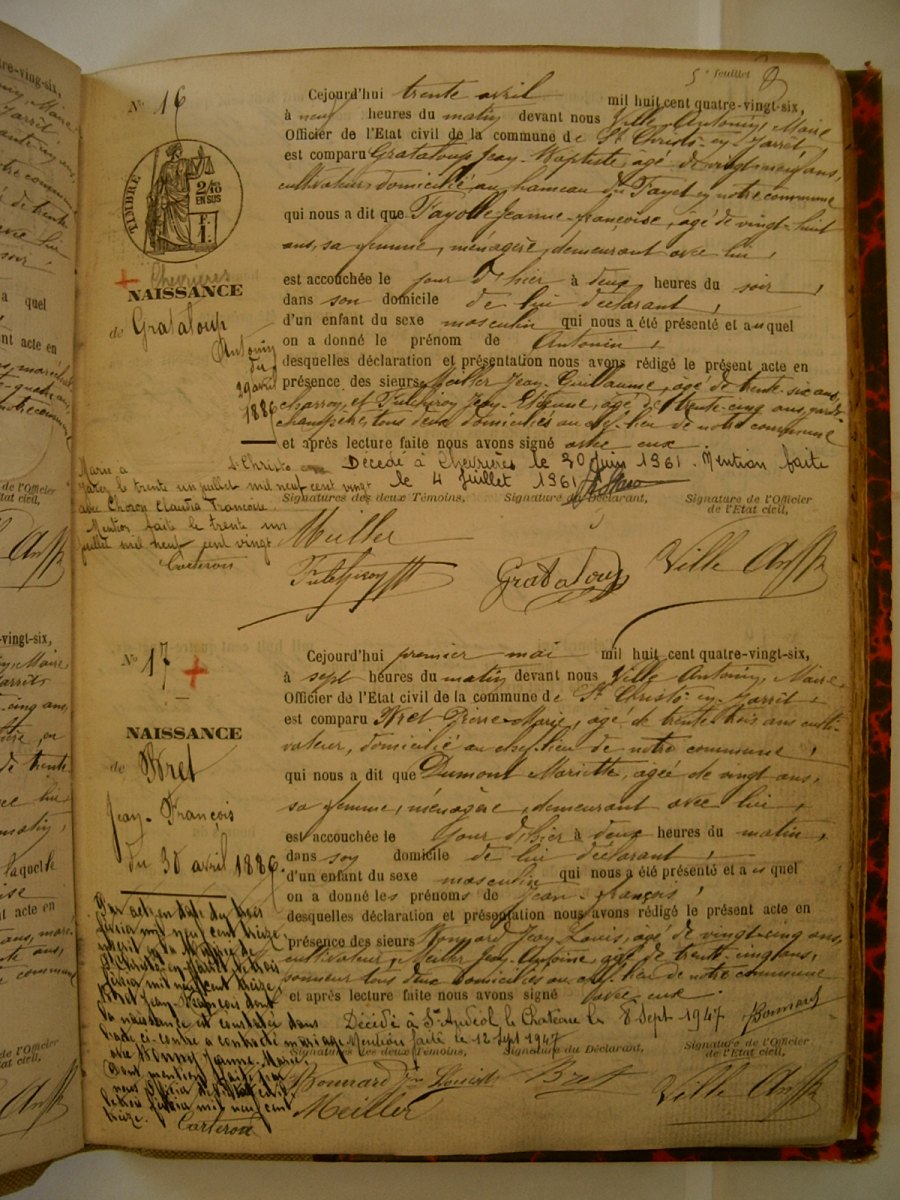 5e feuillet
No 16
TIMBRE
2/10
EN SUS
F.
1.
Chevrières
NAISSANCE
de Grataloup
Antonin
du
29 avril
1886
Cejourd'hui trente avril mil huit cent quatre-vingt-six,
à neuf heures du matin devant nous Ville Antonin, Maire
Officier de l'Etat civil de la commune de St Christô-en-Jarrêt,
est comparu Grataloup Jean-Baptiste, agé de vingt-neuf ans,
cultivateur, domicilié au hameau du Fayet en notre commune
qui nous a dit que Fayolle Jeanne-françoise, agé de vingt-huit
ans, sa femme, ménagère, demeurant avec lui,
est accouchée le jour d'hier à deux heures du soir,
dans son domicile de lui déclarant,
d'un enfant du sexe masculin qui nous a été présenté et auquel
on a donné le prénom de Antonin,
desquelles déclaration et présentation nous avons rédigé le présent acte en
présence des sieurs Meiller Jean-Guillaume, agé de trente-six ans,
charron, et Jean-Etienne, agé de trente-cinq ans, garde
champêtre, tous deux domiciliés au chef-lieu de notre commune
et après lecture faite nous avons signé avec eux.
Décédé à Chevrières le 30 Juin 1961. Mention faite
le 4 Juillet 1961
Marié à St Christo en
Jarez le trente un juillet mil neuf cent vingt
avec Chozon Claudia Françoise.
Mention faite le trente un
juillet mil neuf cent vingt
Carteron
Signatures des deux Témoins, Signature du Déclarant, Signature de l'Officier
de l'Etat civil,
Meiller
Grataloup Ville
No 17
NAISSANCE
de Bret
Jean-François
du 30 avril 1886
Cejourd'hui premier mai mil huit cent quatre-vingt-six,
à sept heures du matin devant nous Ville Antonin, Maire
Officier de l'Etat civil de la commune de St Christô-en-Jarrêt,
est comparu Bret Pierre-Marie, agé de trente-trois ans culti-
vateur, domicilié au chef-lieu de notre commune,
qui nous a dit que Dumont Mariette, agée de vingt ans,
sa femme, ménagère, demeurant avec lui,
est accouchée le jour d'hier à deux heures du matin,
dans son domicile de lui déclarant,
d'un enfant du sexe masculin qui nous a été présenté et auquel
on a donné les prénoms de Jean-françois,
desquelles déclaration et présentation nous avons rédigé le présent acte en
présence des sieurs Bonnard Jean Louis, agé de vingt-cinq ans,
cultivateur, Meiller Jean-Antoine, agé de trente-cinq ans,
sonneur tous deux domiciliés au chef-lieu de notre commune
et après lecture faite nous avons signé avec eux.
Décédé à St Andéol le Château le 8 Sept 1947 Bonnard
Mention faite le 12 Sept 1947
Par acte en date du trois
février mil neuf cent treize
inscrit à la Mairie de
St Christo-en-Jarret le trois
février mil neuf cent treize,
Bret Jean-François dont
la naissance est constatée dans
l'acte ci-contre a contracté mariage
avec Jeanne-Marie.
Dont mention faite par
nous Officier de l'état civil
le trois février mil neuf cent
treize. Carteron
Signatures des deux Témoins, Signature du Déclarant, Signature de l'Officier
de l'Etat civil,
Bonnard Bret Ville
Meiller